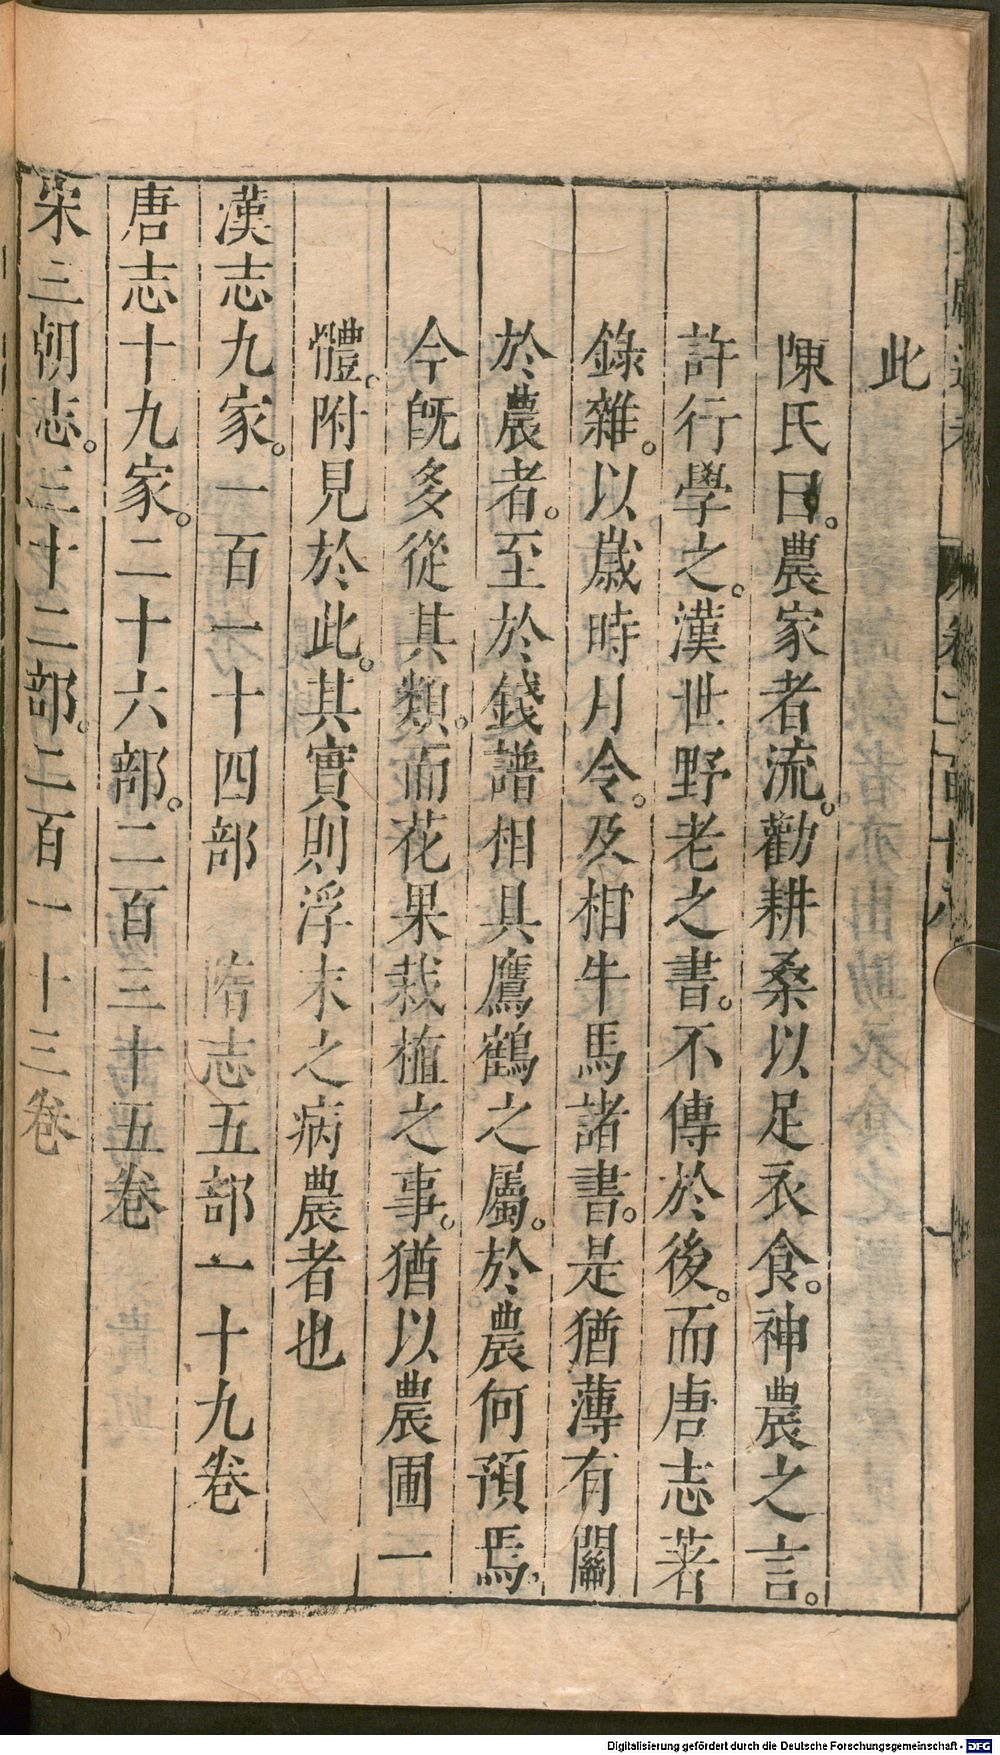 此
陳氏曰。農家者流。勸耕桑以足衣食。神農之言。
許行學之。漢世野老之書。不傳於後。而唐志著
錄雜。以歲時月令。及相牛馬諸書。是猶薄有關
於農者。至於錢譜相具鷹鶴之屬。於農何預焉,
今旣多從其類。而花果栽植之事。猶以農圃一
體。附見於此。其實則浮末之病農者也
漢志九家。一百一十四部　隋志五部一十九卷
唐志十九家。二十六部。二百三十五卷
宋三朝志。三十二部。二百一十三卷
Digitalisierung gefördert durch die Deutsche Forschungsgemeinschaft - DFG